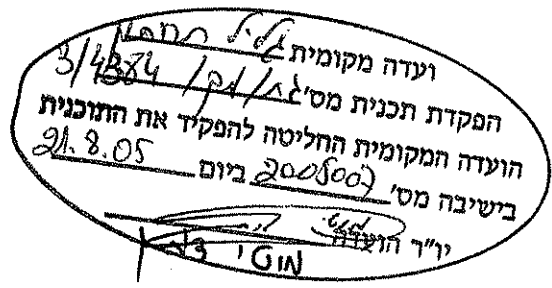 ועדה מקומית גליל תחתון
הפקדת תכנית מס' ג/ת/מק/ 3/4384
הועדה המקומית החליטה להפקיד את התוכנית
בישיבה מס' 2005007 ביום 21.8.05
יו"ר הועדה
מוטי